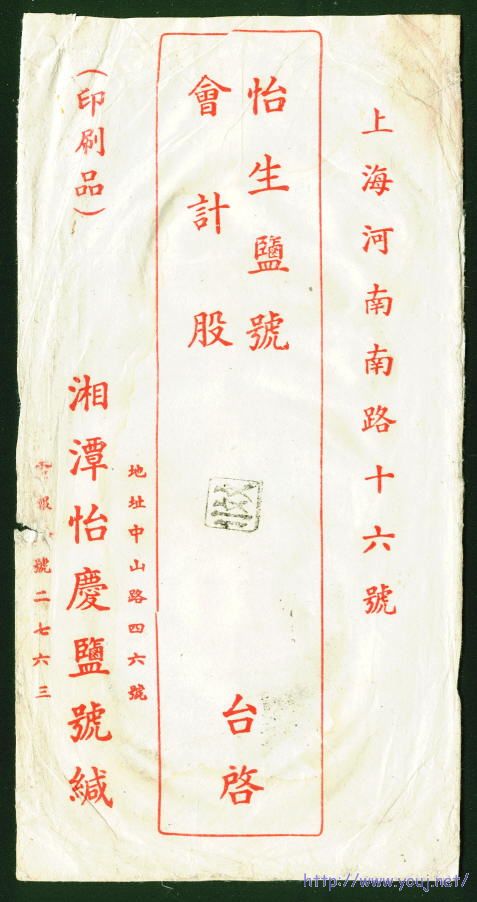 上海河南南路十六號
怡生鹽號
會計股
台啓
地址中山路四六號
湘潭怡慶鹽號緘
號二七六三
（印刷品）
http://www.youj.net/